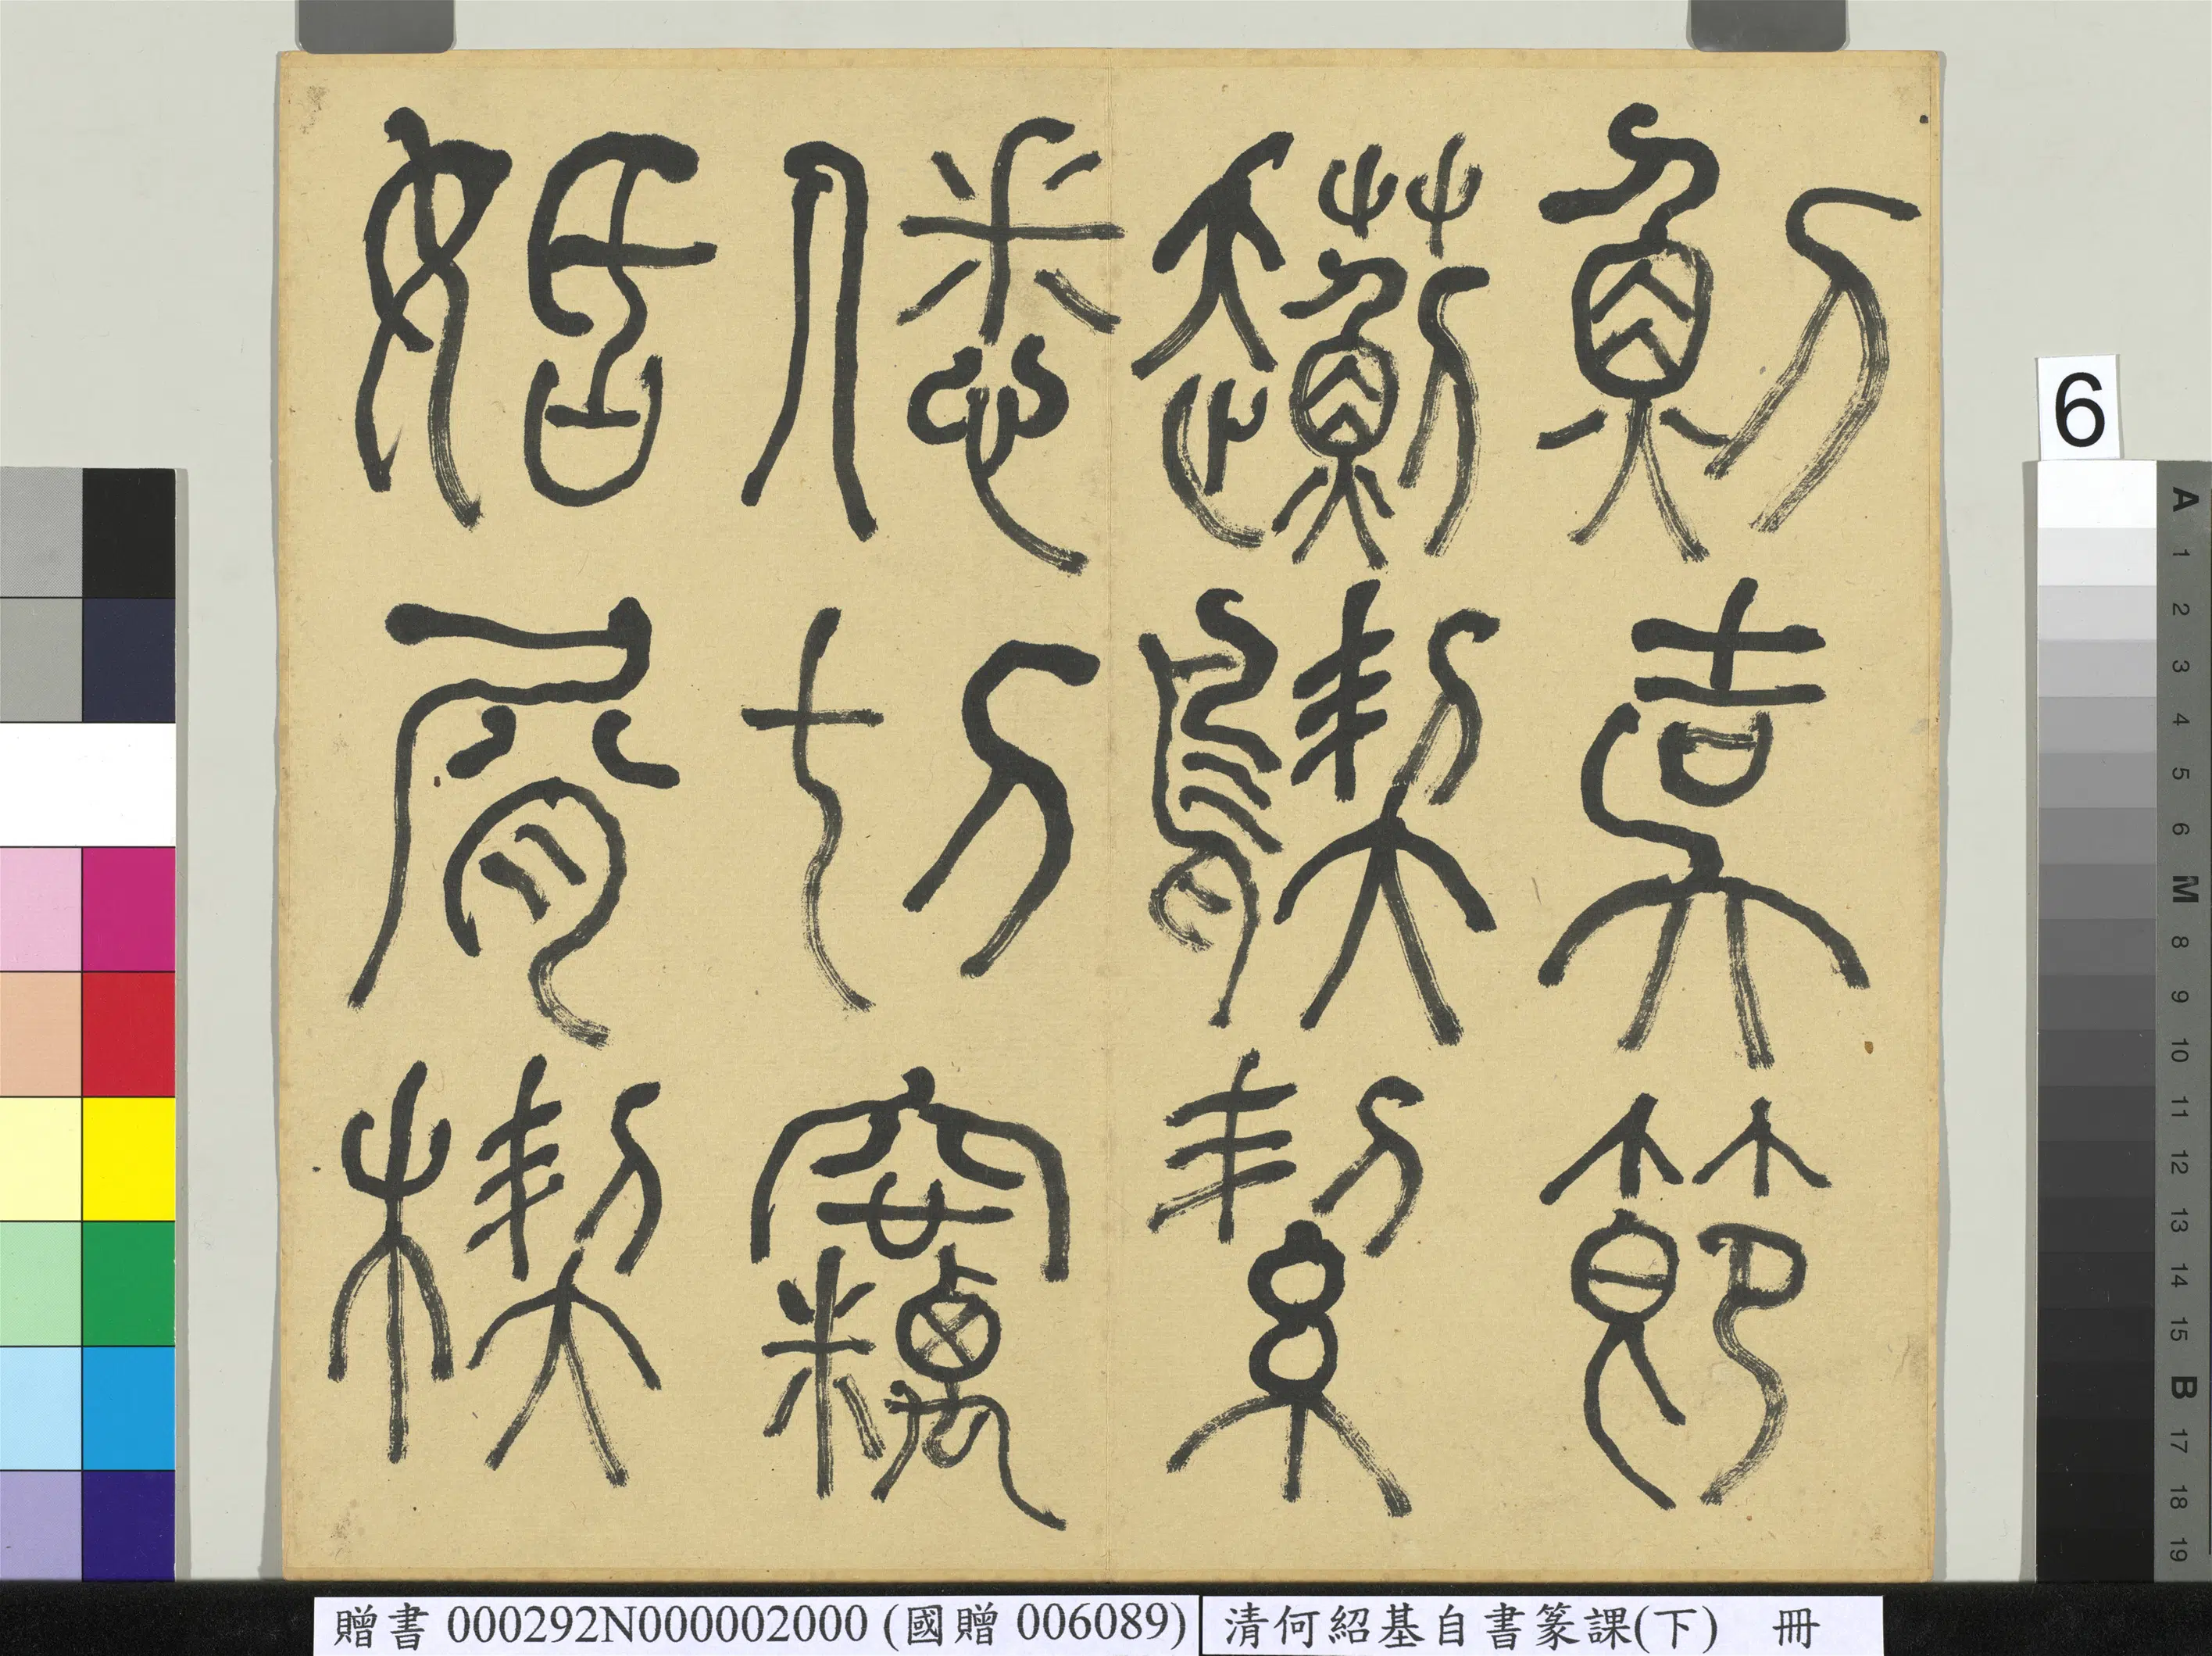 魝節
絜
僁切竊
姡屑楔
6
A 1 2 3 4 5 6 M 8 9 10 11 12 13 14 15 B 17 18 19
贈書 000292N000002000 (國贈 006089)
清何紹基自書篆課(下) 冊